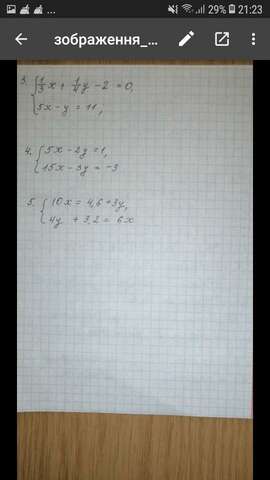 29% 21:23
зображення_...
3. { 1/3 x + 1/4 y - 2 = 0,
5x - y = 11,
4. { 5x - 2y = 1,
15x - 3y = -3
5. { 10x = 4,6 + 3y,
4y + 3,2 = 6x